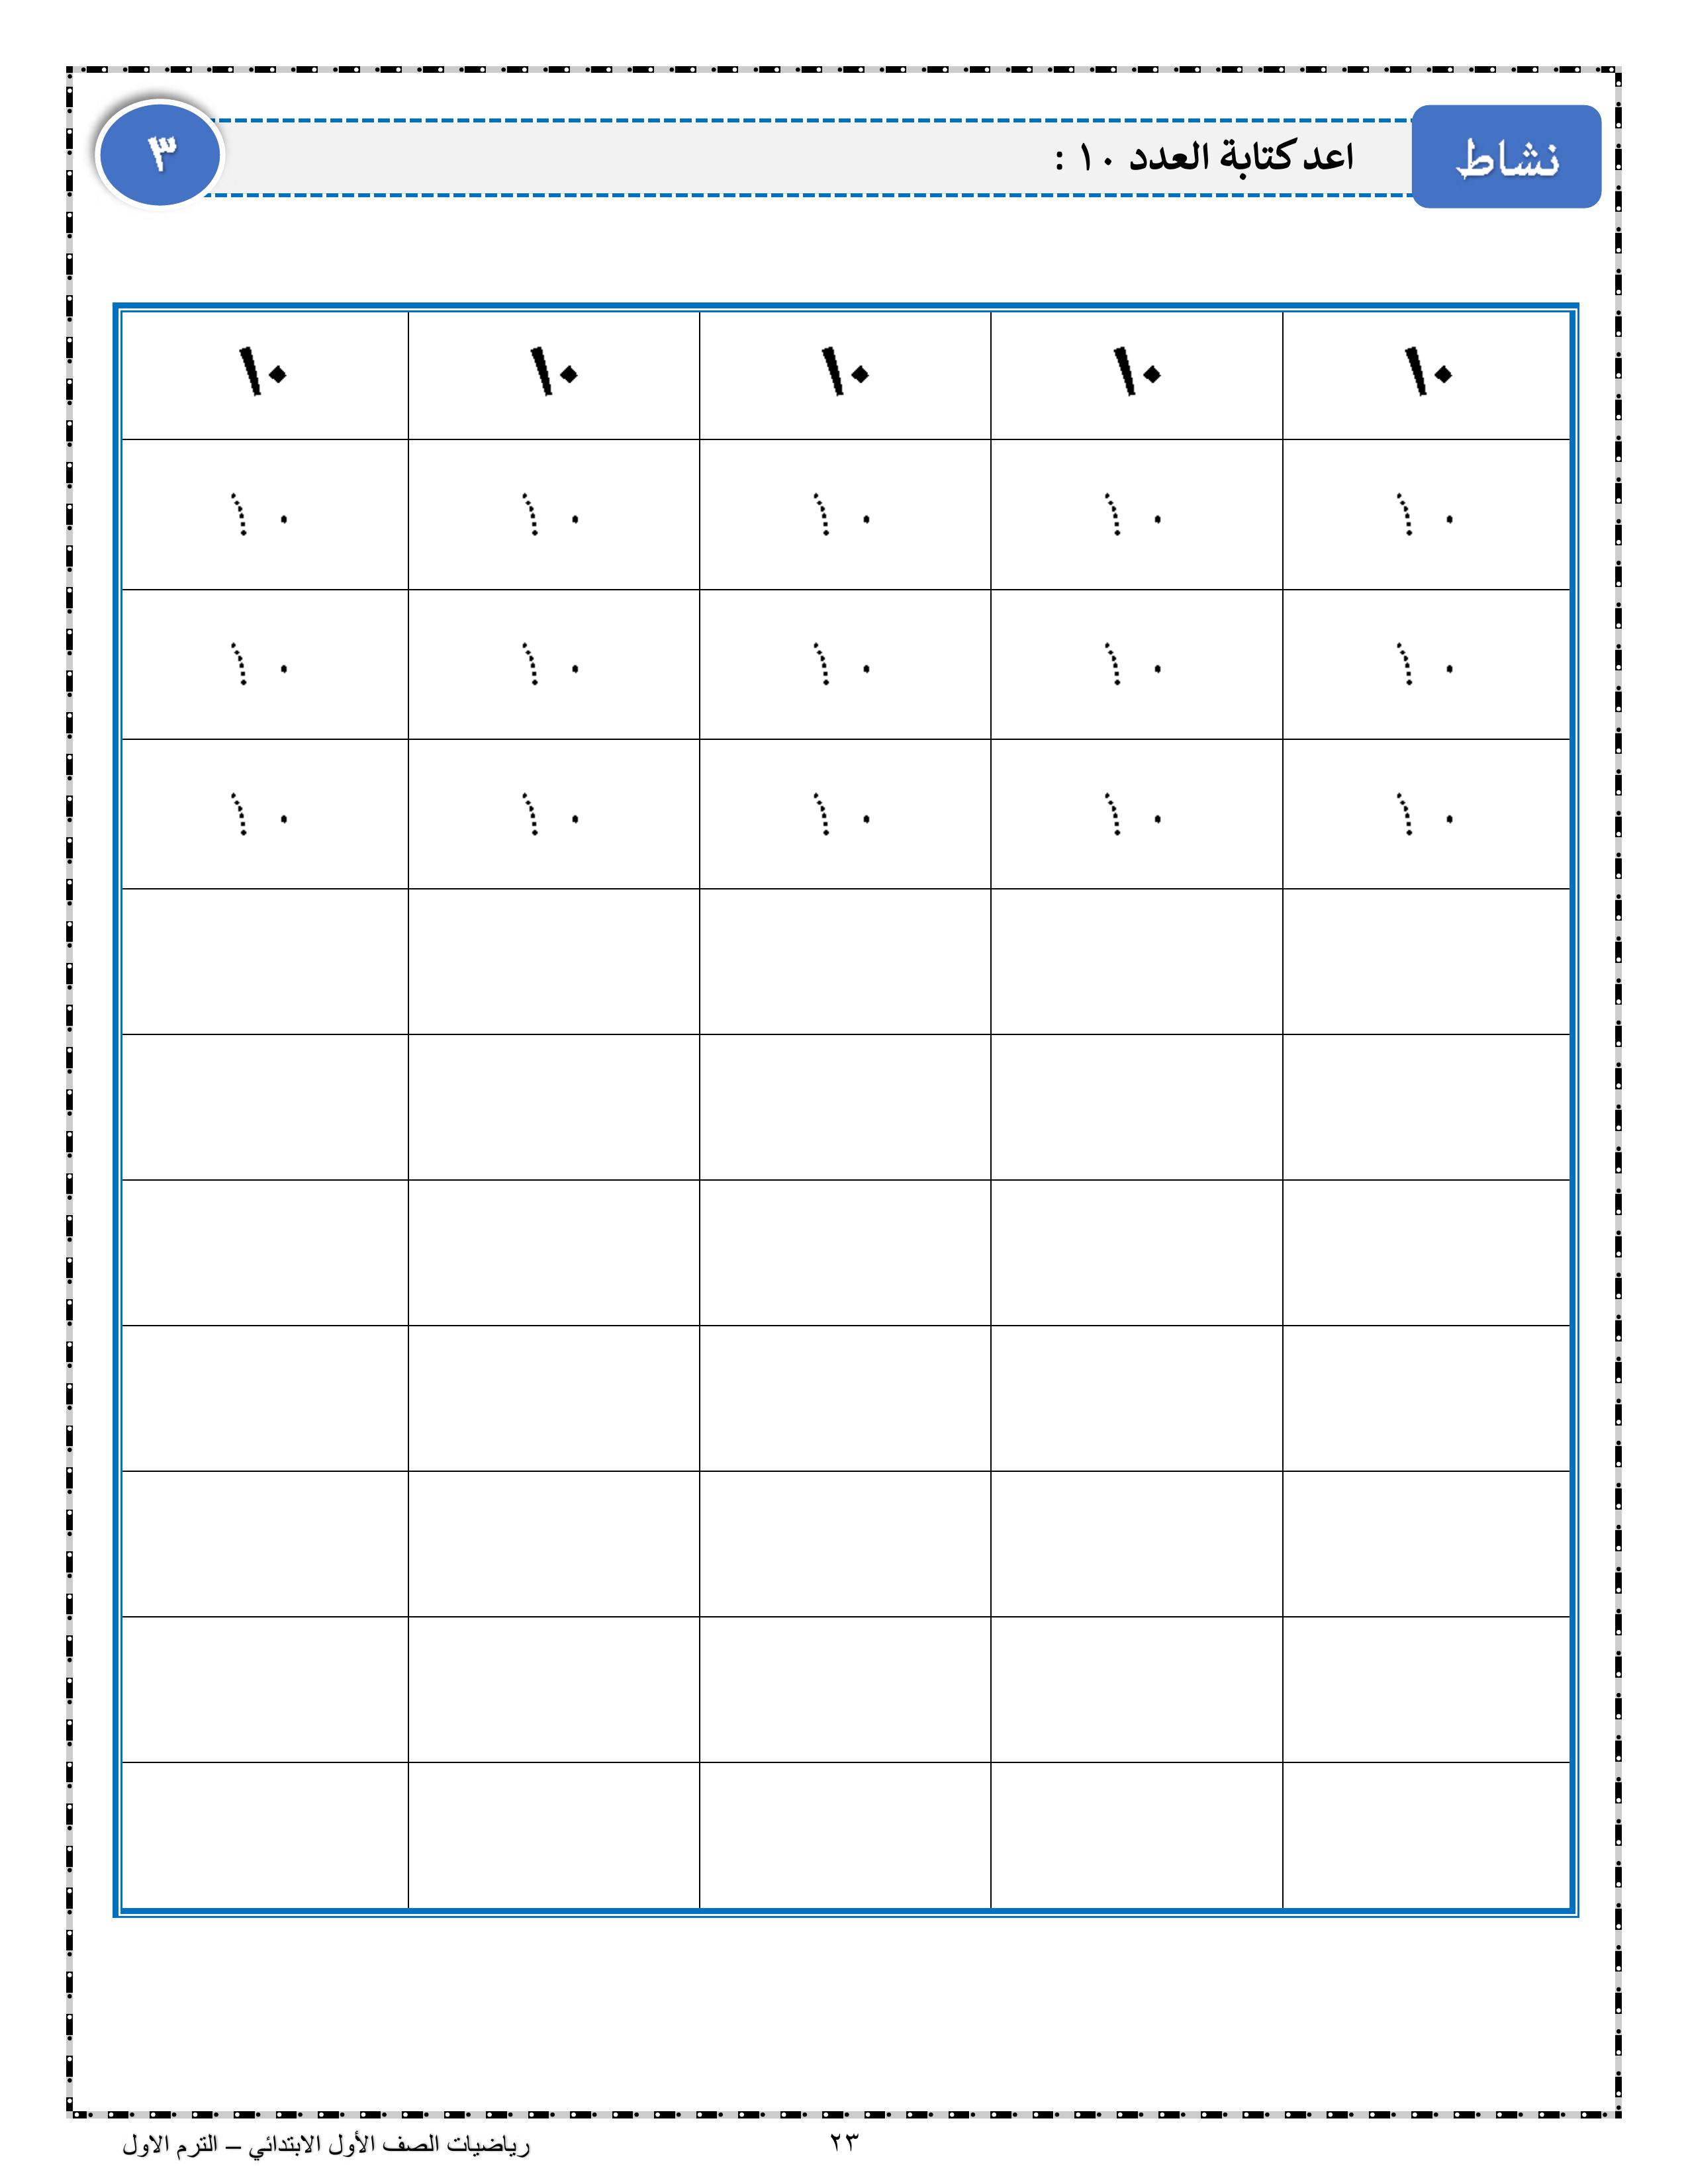 نشاط
اعد كتابة العدد ١٠ :
٣
١٠ ١٠ ١٠ ١٠ ١٠
١٠ ١٠ ١٠ ١٠ ١٠
١٠ ١٠ ١٠ ١٠ ١٠
١٠ ١٠ ١٠ ١٠ ١٠
٢٣
رياضيات الصف الأول الابتدائي – الترم الاول